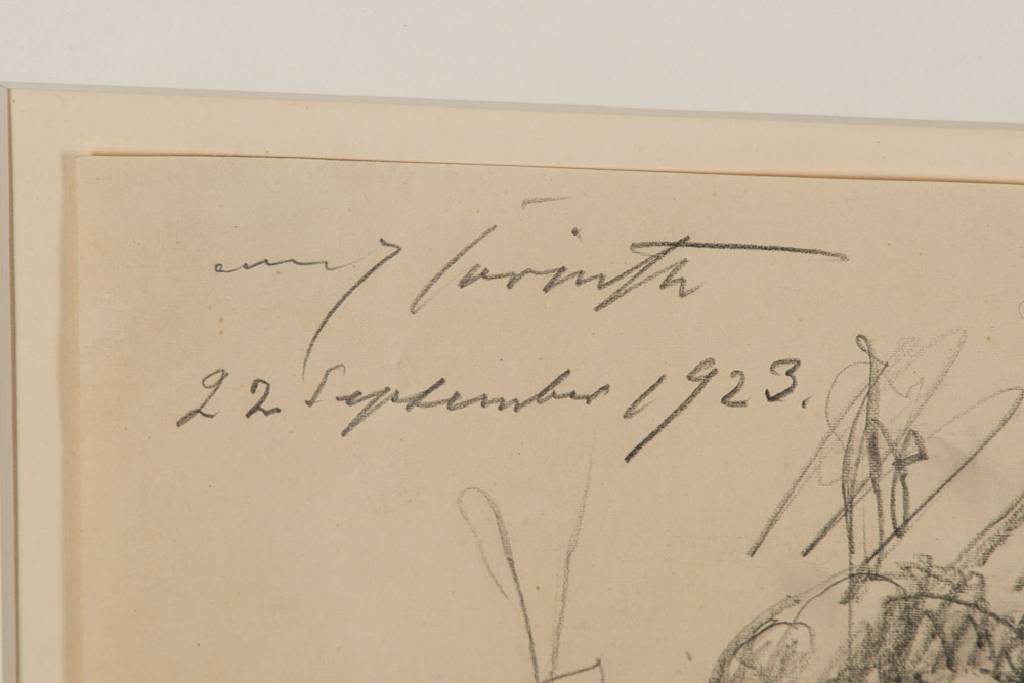 Corinth
22 September 1923.